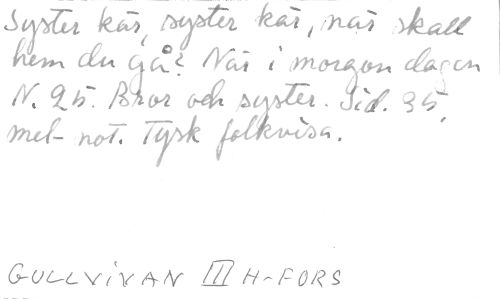 Syster kär, syster kär, när skall
hem du gå? När i morgon dagen
N. 25. Bror och syster. Sid. 35,
mel- not. Tysk folkvisa.
GULLVIVAN III H-FORS